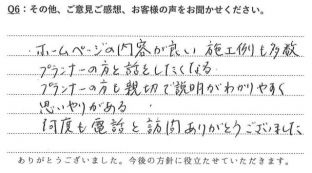 Q6：その他、ご意見ご感想、お客様の声をお聞かせください。
ホームページの内容が良い 施工例も多数
プランナーの方と話をしたくなる
プランナーの方も親切で説明がわかりやすく
思いやりがある
何度も電話と訪問ありがとうございました
ありがとうございました。今後の方針に役立たせていただきます。